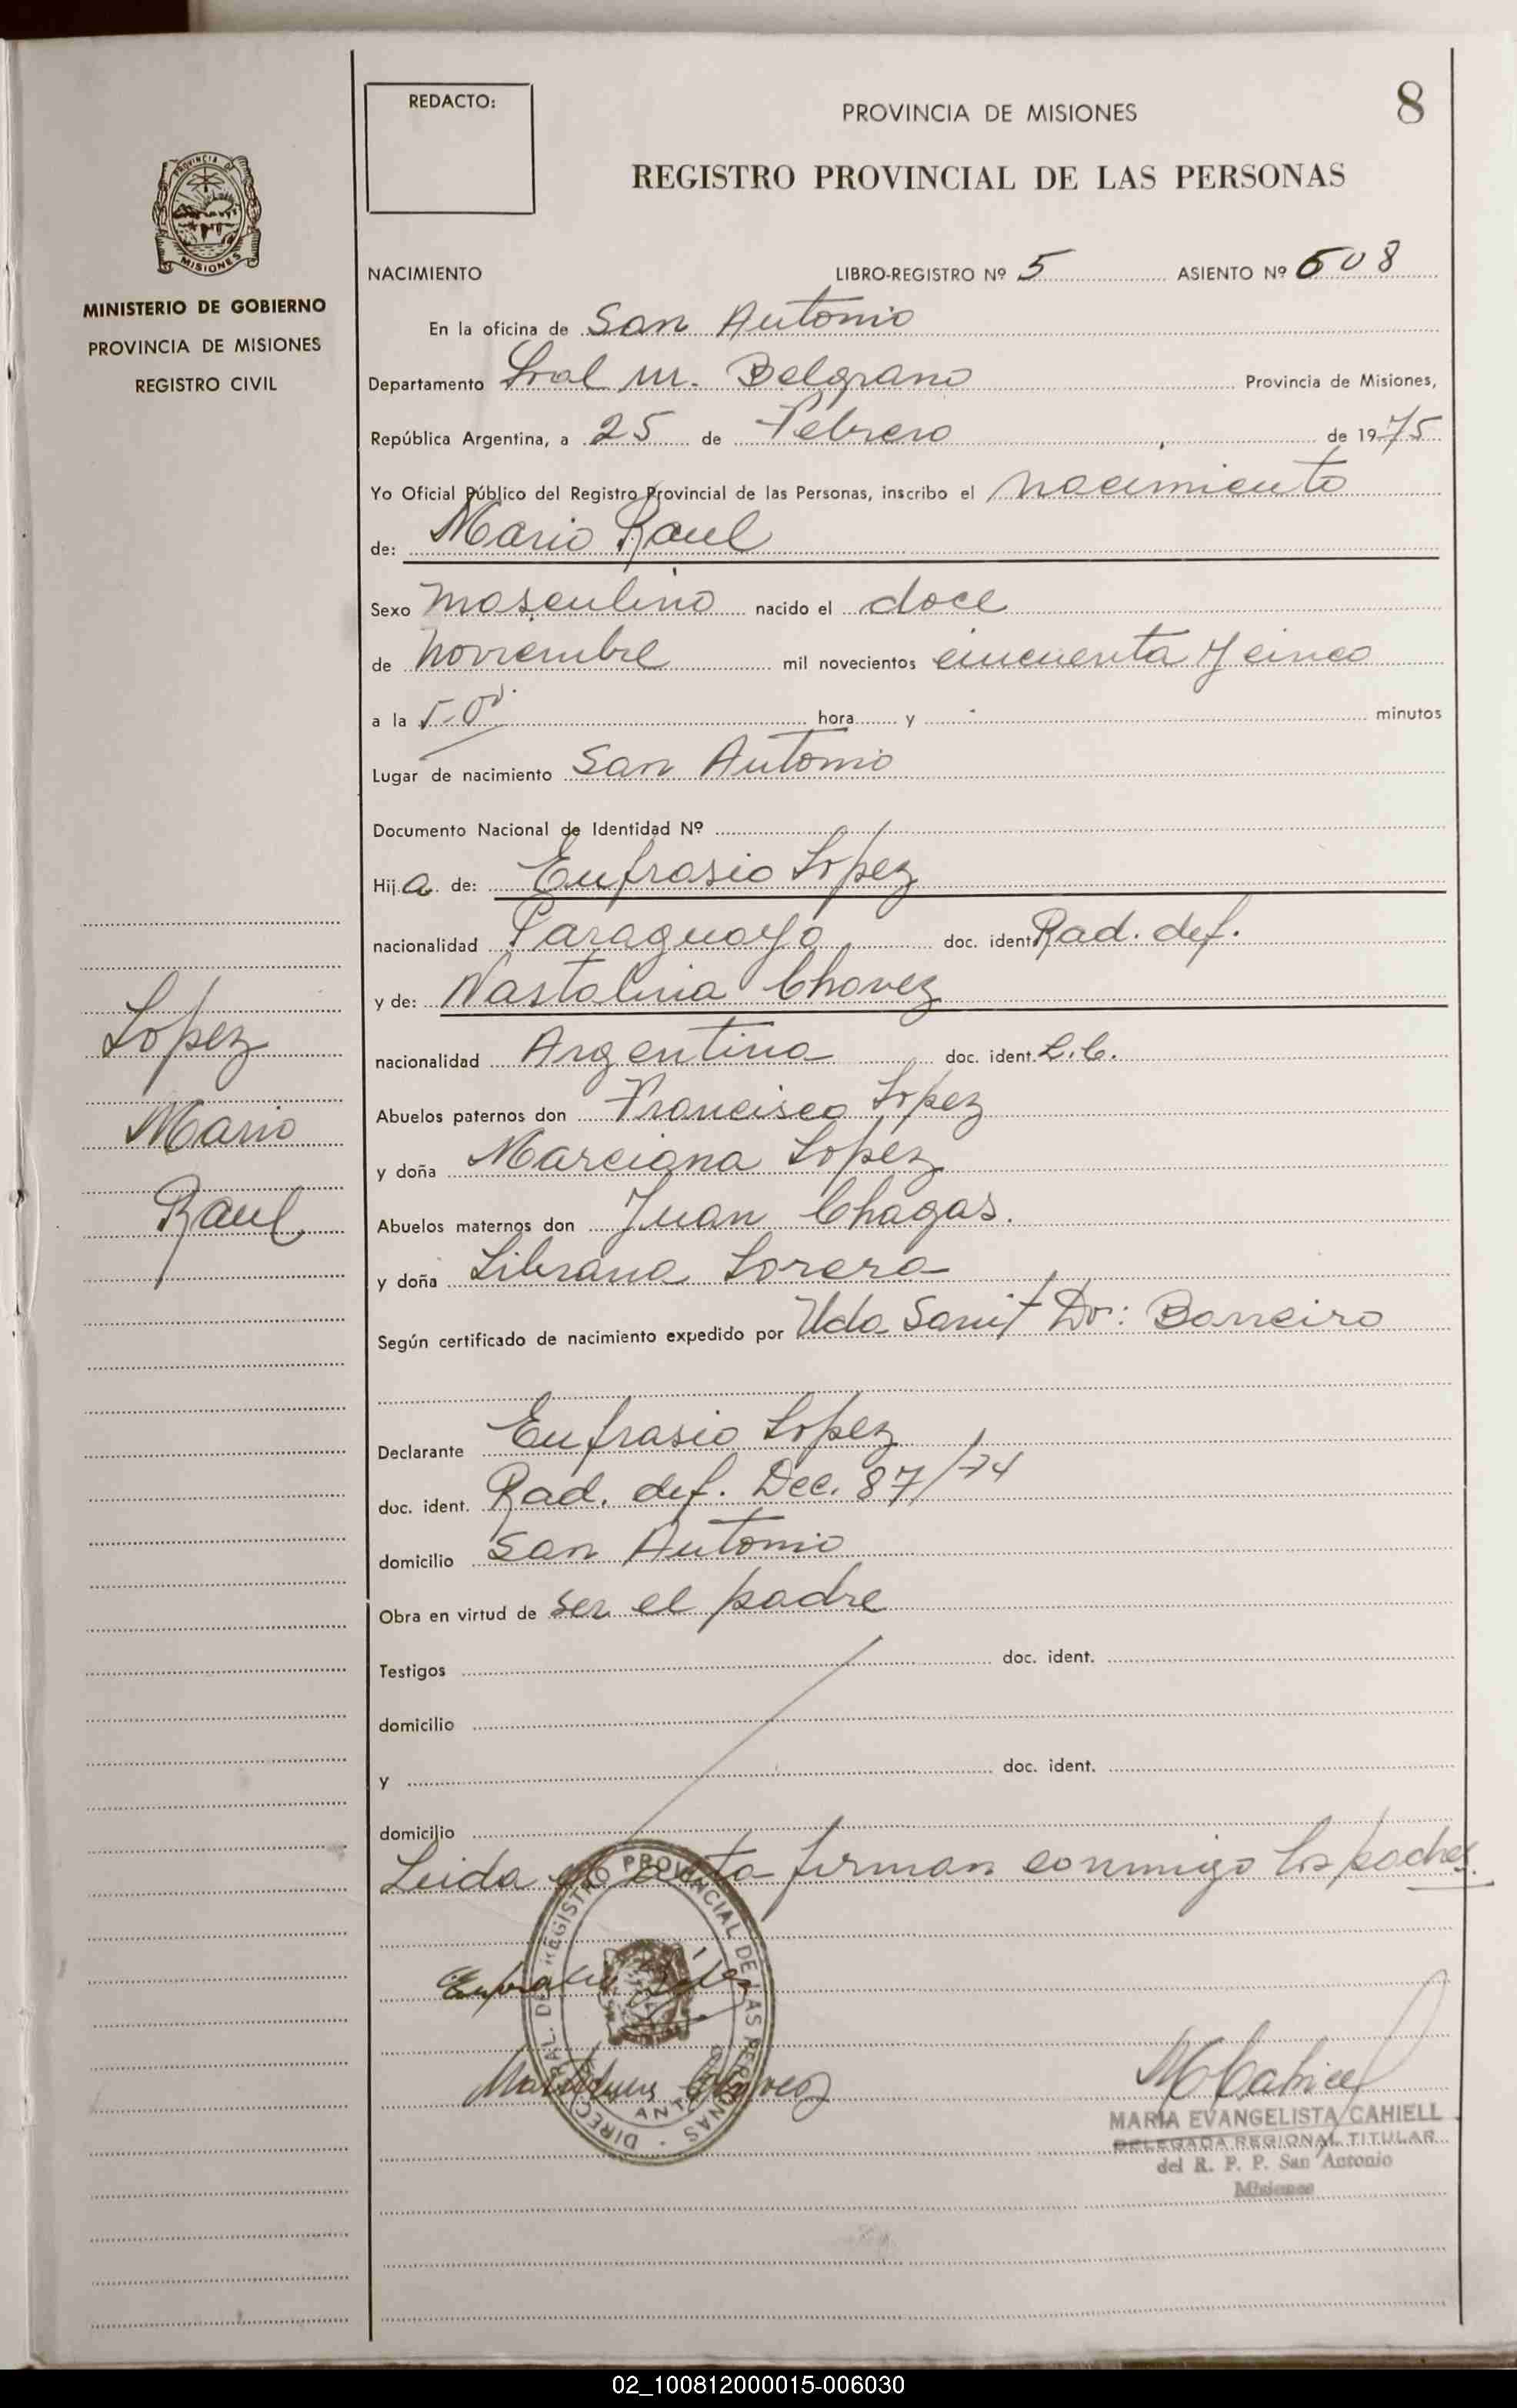 REDACTO:
PROVINCIA DE MISIONES
8
REGISTRO PROVINCIAL DE LAS PERSONAS
PROVINCIA DE
MISIONES
MINISTERIO DE GOBIERNO
PROVINCIA DE MISIONES
REGISTRO CIVIL
NACIMIENTO LIBRO-REGISTRO Nº 5 ASIENTO Nº 608
En la oficina de San Antonio
Departamento Gral M. Belgrano Provincia de Misiones,
República Argentina, a 25 de Febrero de 1975
Yo Oficial Público del Registro Provincial de las Personas, inscribo el nacimiento
de: Mario Raul
Sexo masculino nacido el doce
de noviembre mil novecientos cincuenta y cinco
a la 5-00 hora y minutos
Lugar de nacimiento San Antonio
Documento Nacional de Identidad Nº
Hija de: Eufrasio Lopez
nacionalidad Paraguaya doc. ident. Rad. def.
y de: Nastolina Chavez
nacionalidad Argentina doc. ident. L.C.
Abuelos paternos don Francisco Lopez
y doña Marciana Lopez
Abuelos maternos don Juan Chagas.
y doña Librana
Según certificado de nacimiento expedido por Uda Sanit Dr: Barreiro
Declarante Eufrasio Lopez
doc. ident. Rad. def. Dec. 87/74
domicilio San Antonio
Obra en virtud de ser el padre
Testigos doc. ident.
domicilio
y doc. ident.
domicilio
Leida el acta firman conmigo los padres.
Lopez
Mario
Raul
DIREC. GRAL. DE REGISTRO PROVINCIAL DE LAS PERSONAS
MARIA EVANGELISTA CAHIELL
DELEGADA REGIONAL TITULAR
del R. P. P. San Antonio
Misiones
02_100812000015-006030